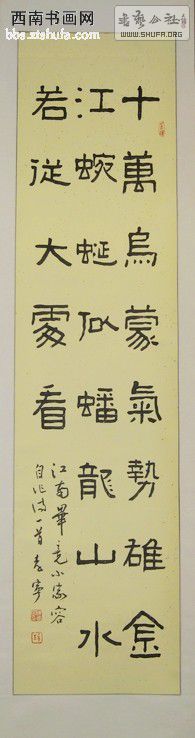 西南书画网
bbs.xbshufa.com
书艺公社
WWW.SHUFA.ORG
十萬烏蒙氣勢雄金
江蜿蜒似蟠龍山水
若從大處看
江南華竟小家容
自作诗一首